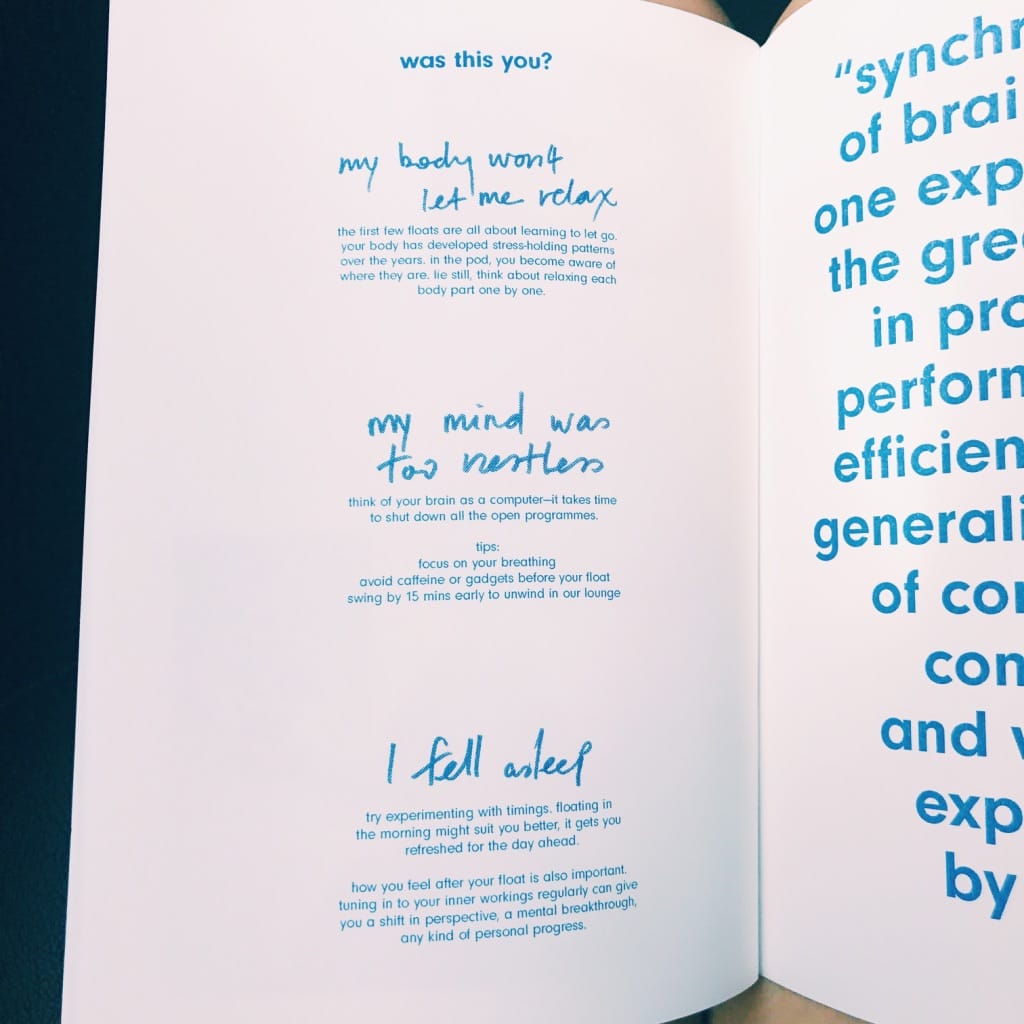 was this you?
my body won't
let me relax
the first few floats are all about learning to let go.
your body has developed stress-holding patterns
over the years. in the pod, you become aware of
where they are. lie still, think about relaxing each
body part one by one.
my mind was
too restless
think of your brain as a computer—it takes time
to shut down all the open programmes.
tips:
focus on your breathing
avoid caffeine or gadgets before your float
swing by 15 mins early to unwind in our lounge
I fell asleep
try experimenting with timings. floating in
the morning might suit you better, it gets you
refreshed for the day ahead.
how you feel after your float is also important.
tuning in to your inner workings regularly can give
you a shift in perspective, a mental breakthrough,
any kind of personal progress.
"synchr
of brai
one exp
the gre
in pro
perform
efficien
generali
of con
con
and
exp
by